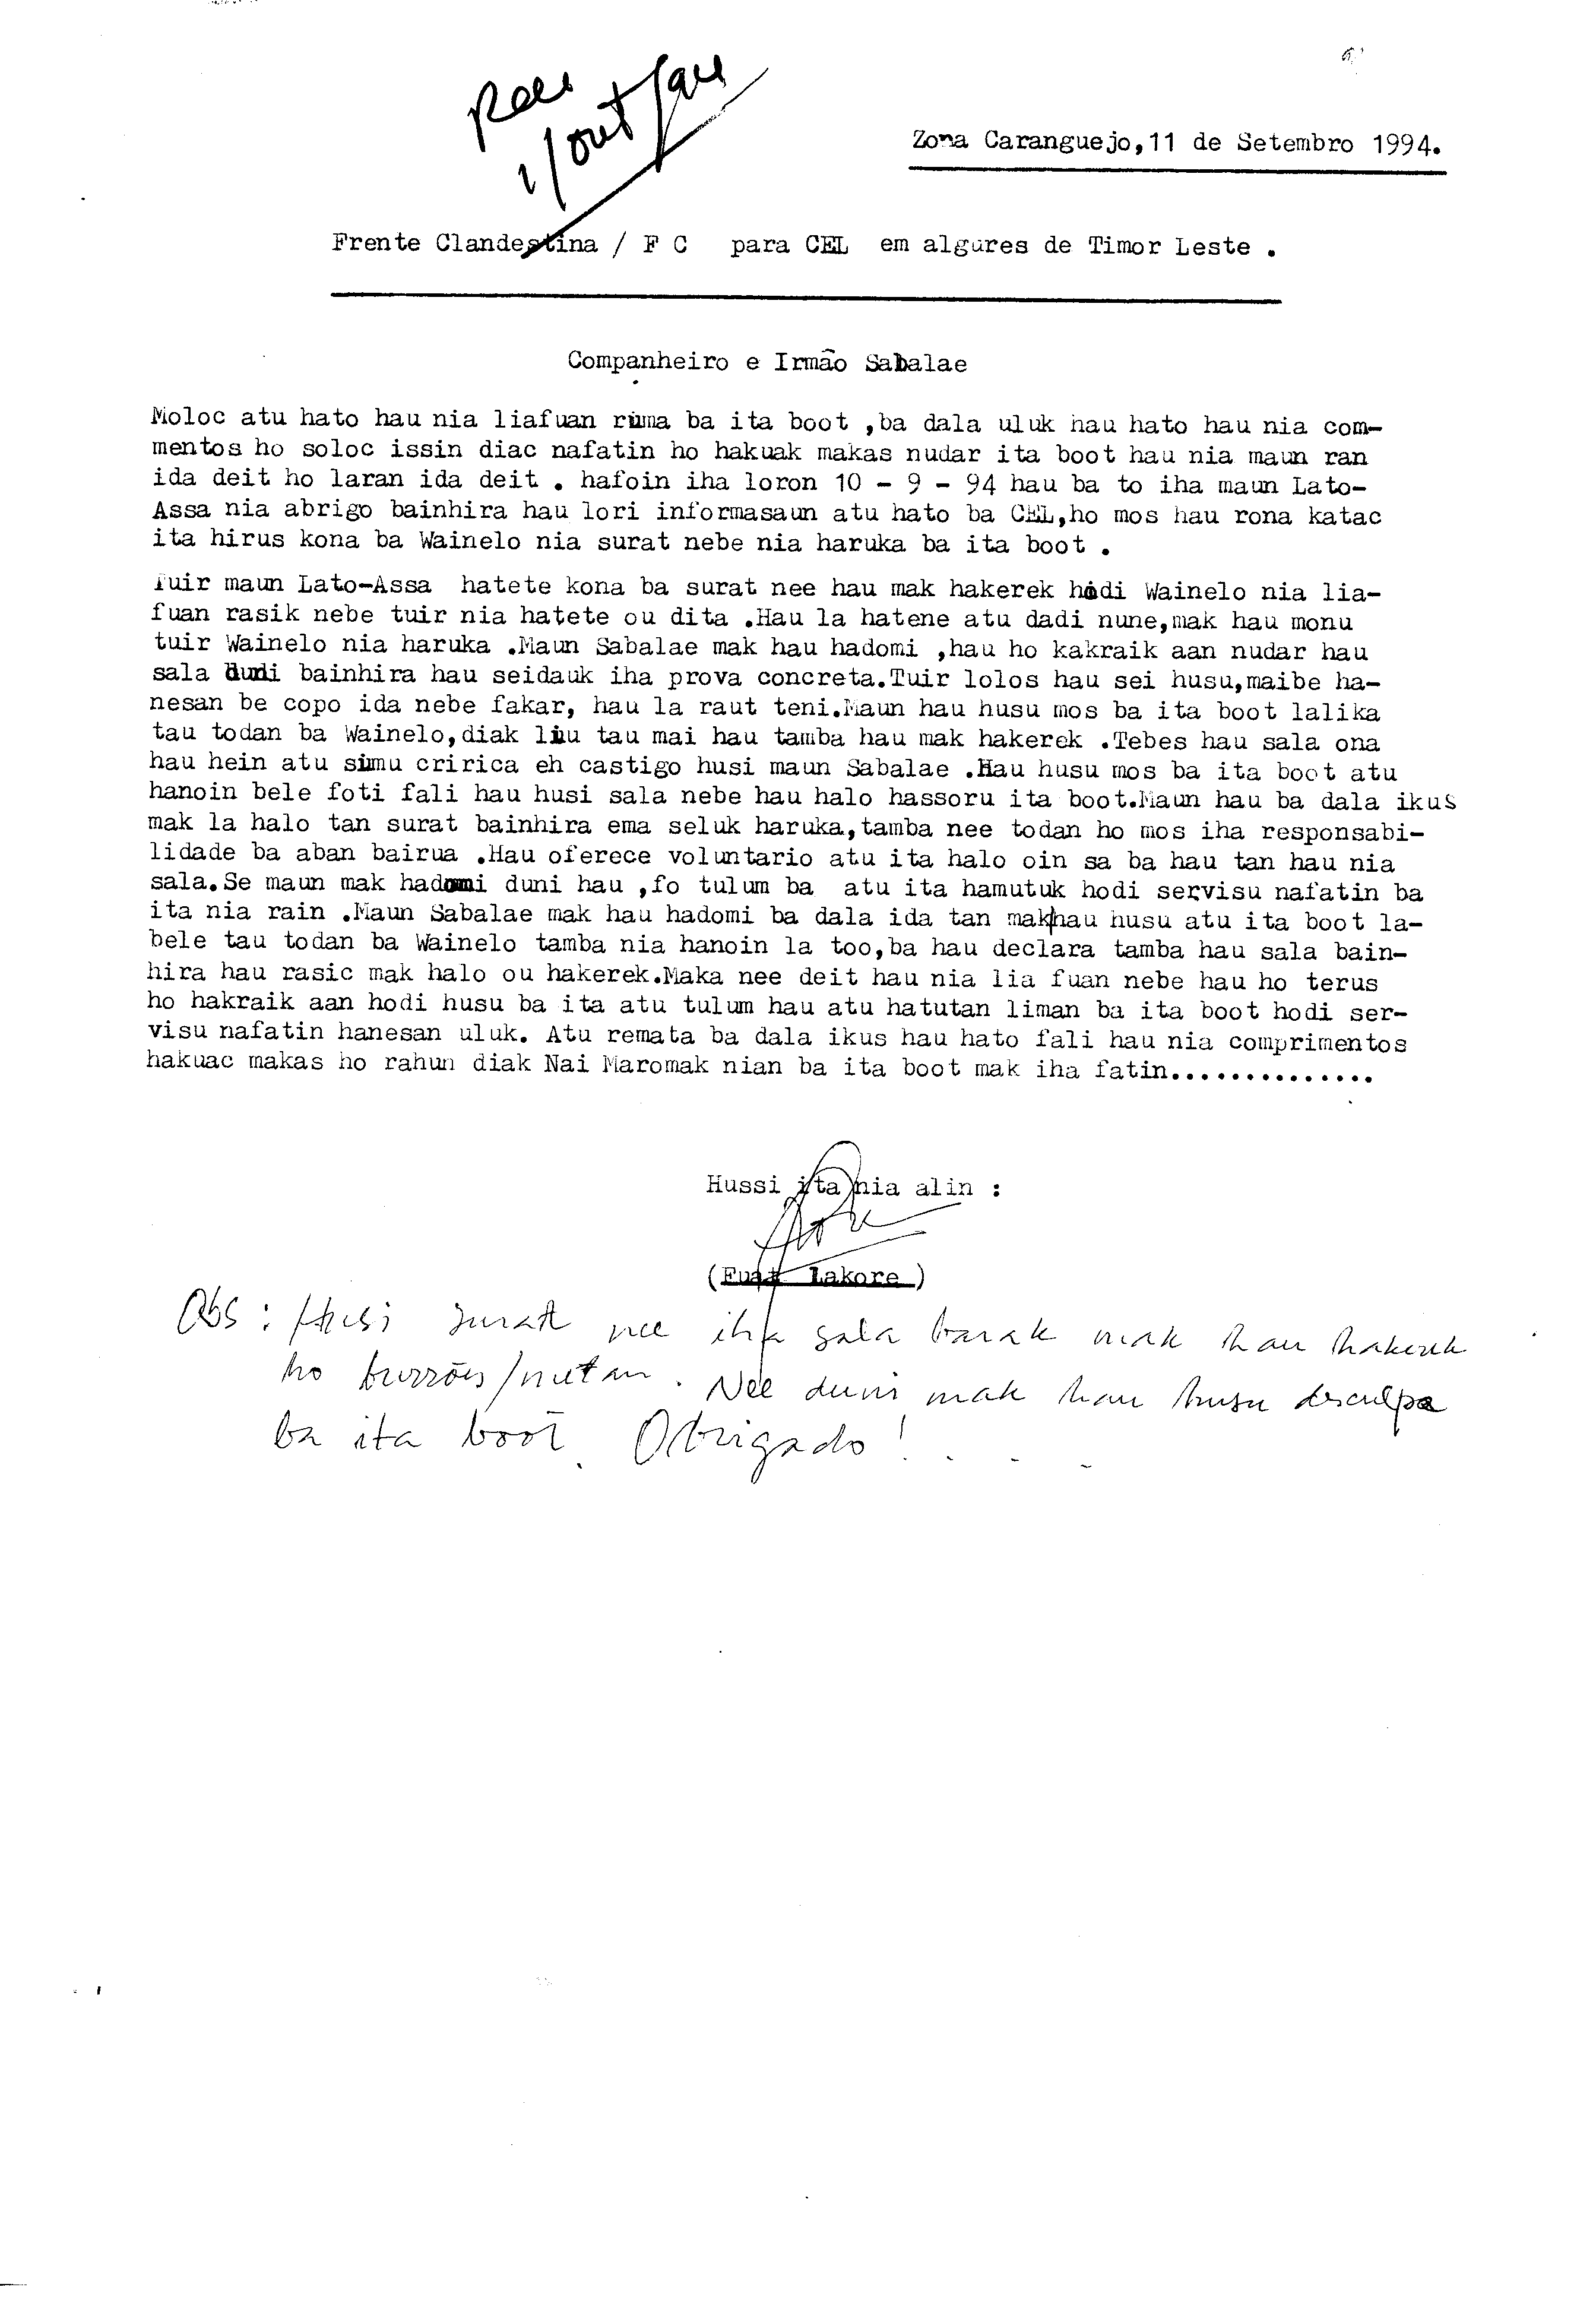 Rec
1/out/94
Zona Caranguejo,11 de Setembro 1994.
Frente Clandestina / F C para CEL em algures de Timor Leste .
Companheiro e Irmão Sabalae
Moloc atu hato hau nia liafuan ruma ba ita boot ,ba dala uluk hau hato hau nia com-
mentos ho soloc issin diac nafatin ho hakuak makas nudar ita boot hau nia maun ran
ida deit ho laran ida deit . hafoin iha loron 10 - 9 - 94 hau ba to iha maun Lato-
Assa nia abrigo bainhira hau lori informasaun atu hato ba CEL,ho mos hau rona katac
ita hirus kona ba Wainelo nia surat nebe nia haruka ba ita boot .
Tuir maun Lato-Assa hatete kona ba surat nee hau mak hakerek hodi Wainelo nia lia-
fuan rasik nebe tuir nia hatete ou dita .Hau la hatene atu dadi nune,mak hau monu
tuir Wainelo nia haruka .Maun Sabalae mak hau hadomi ,hau ho kakraik aan nudar hau
sala duni bainhira hau seidauk iha prova concreta.Tuir lolos hau sei husu,maibe ha-
nesan be copo ida nebe fakar, hau la raut teni.Maun hau husu mos ba ita boot lalika
tau todan ba Wainelo,diak liu tau mai hau tamba hau mak hakerek .Tebes hau sala ona
hau hein atu simu cririca eh castigo husi maun Sabalae .Hau husu mos ba ita boot atu
hanoin bele foti fali hau husi sala nebe hau halo hassoru ita boot.Maun hau ba dala ikus
mak la halo tan surat bainhira ema seluk haruka,tamba nee todan ho mos iha responsabi-
lidade ba aban bairua .Hau oferece voluntario atu ita halo oin sa ba hau tan hau nia
sala.Se maun mak hadomi duni hau ,fo tulum ba atu ita hamutuk hodi servisu nafatin ba
ita nia rain .Maun Sabalae mak hau hadomi ba dala ida tan mak hau husu atu ita boot la-
bele tau todan ba Wainelo tamba nia hanoin la too,ba hau declara tamba hau sala bain-
hira hau rasic mak halo ou hakerek.Maka nee deit hau nia lia fuan nebe hau ho terus
ho hakraik aan hodi husu ba ita atu tulum hau atu hatutan liman ba ita boot hodi ser-
visu nafatin hanesan uluk. Atu remata ba dala ikus hau hato fali hau nia comprimentos
hakuac makas ho rahun diak Nai Maromak nian ba ita boot mak iha fatin..............
Hussi ita nia alin :
( Lakore )
Obs : Husi surat nee iha sala barak mak hau hakerek
ho burrões/metan. Nee duni mak hau husu desculpa
ba ita boot. Obrigado! . . .